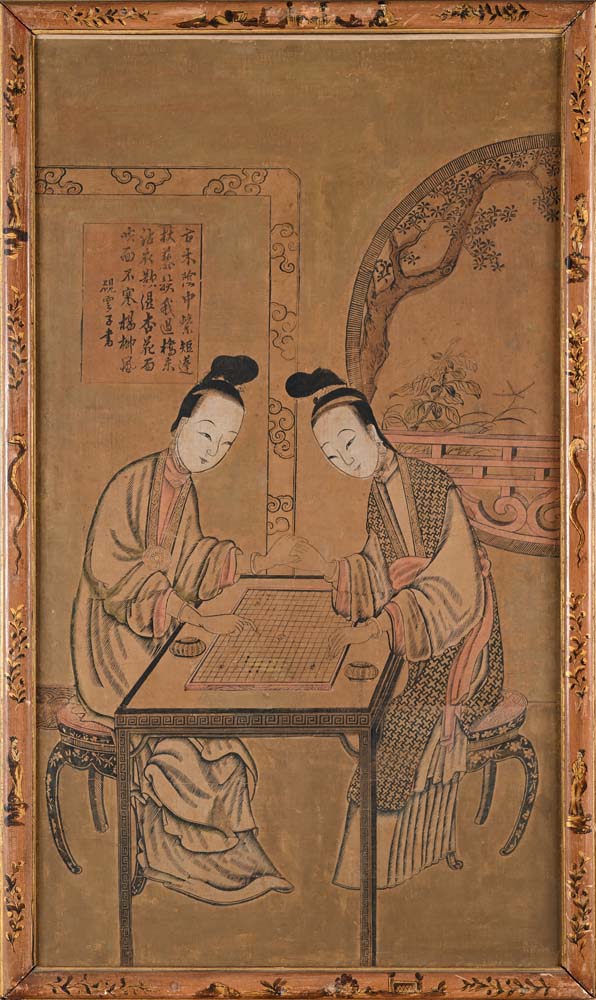 古木陰中繫短蓬
杖藜扶我過橋東
沾衣欲濕杏花雨
吹面不寒楊柳風
硯雲子書